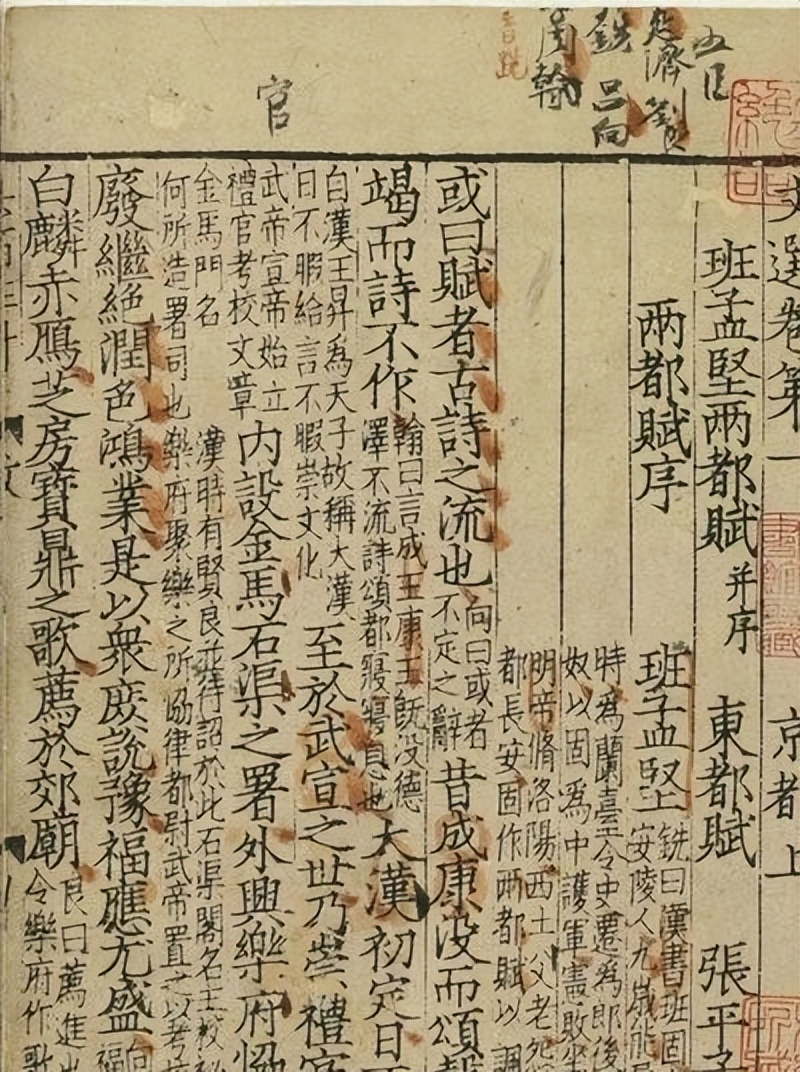 五臣
延濟 劉良
銑 呂向
周翰
音跣
官
文選卷第一 京都上
班孟堅兩都賦并序 東都賦 張平子
兩都賦序 班孟堅 銑曰漢書班固
安陵人九歲能屬
特為蘭臺令史遷為郎後
奴以固為中護軍憲敗坐
明帝脩洛陽西土父老怨
都長安固作兩都賦以諷
或曰賦者古詩之流也 向曰或者
不定之辭 昔成康沒而頌
竭而詩不作 翰曰言成王康王既沒德
澤不流詩頌都寢寢息也 大漢初定日不
自漢王昇為天子故稱大漢
日不暇給言不暇崇文化 至於武宣之世乃崇禮官
武帝宣帝始立
禮官考校文章 內設金馬石渠之署外興樂府協
金馬門名漢時有賢良並待詔於此石渠閣名主校祕
何所造署司也樂府聚樂之所協律都尉武帝置之以考校
廢繼絕潤色鴻業是以眾庶說豫福應尤盛 向
福
白麟赤鴈芝房寶鼎之歌薦於郊廟 良曰薦進也
令樂府作歌